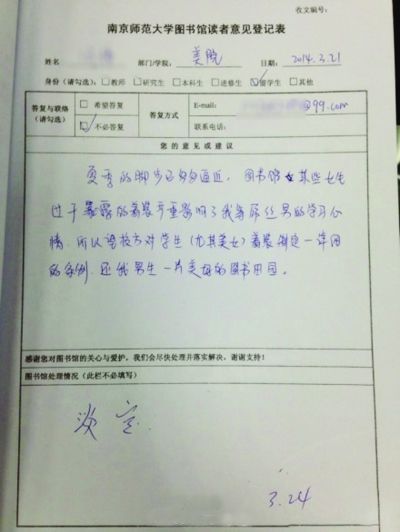 收文编号：
南京师范大学图书馆读者意见登记表
姓名 部门/学院： 美院 日期： 2014.3.21
身份（请勾选）：□教师 □研究生 □本科生 □进修生 ☑留学生 □其他
答复与联络（请勾选） □ 希望答复 ☑ 不必答复 答复方式 E-mail: @qq.com 联系电话：
您 的 意 见 或 建 议
夏季的脚步已匆匆逼近，图书馆女某些女生
过于暴露的着装严重影响了我等屌丝男的学习心
情，所以望校方对学生（尤其美女）着装制定一详细
的条例，还我男生一片美好的图书田园。
感谢您对图书馆的关心与爱护，我们会尽快处理并落实解决，谢谢支持！
图书馆处理情况（此栏不必填写）
淡定
3.24